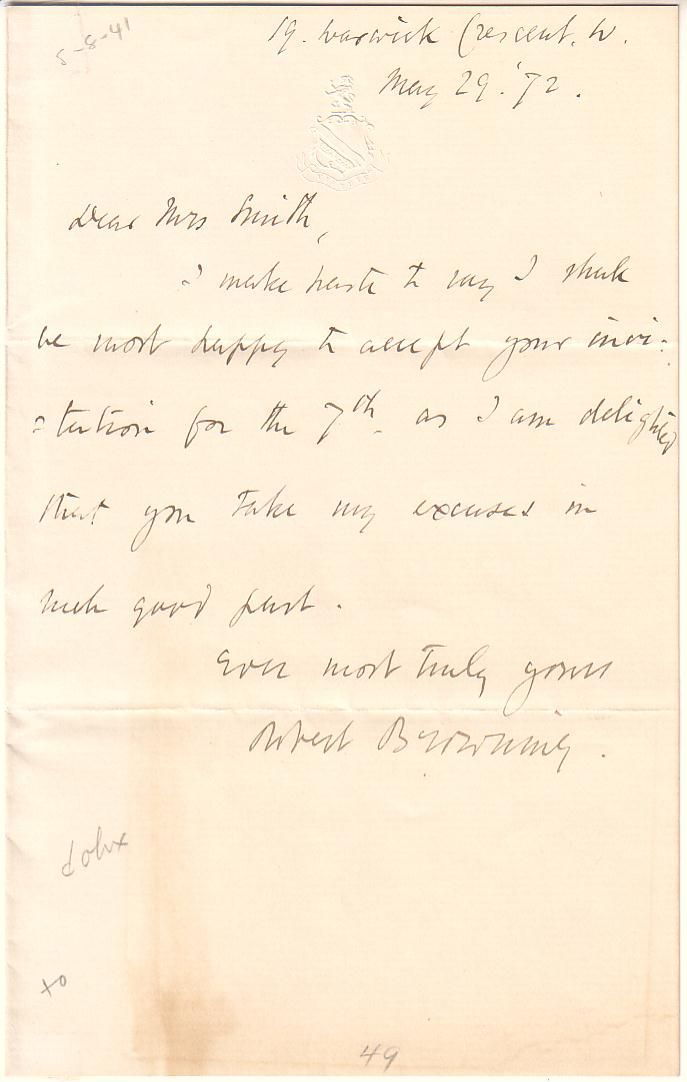 5-8-41
19. Warwick Crescent. W.
May 29. '72.
Dear Mrs Smith,
I make haste to say I shall
be most happy to accept your invi-
-tation for the 7th. as I am delighted
that you take my excuses in
such good part.
Ever most truly yours
Robert Browning.
49